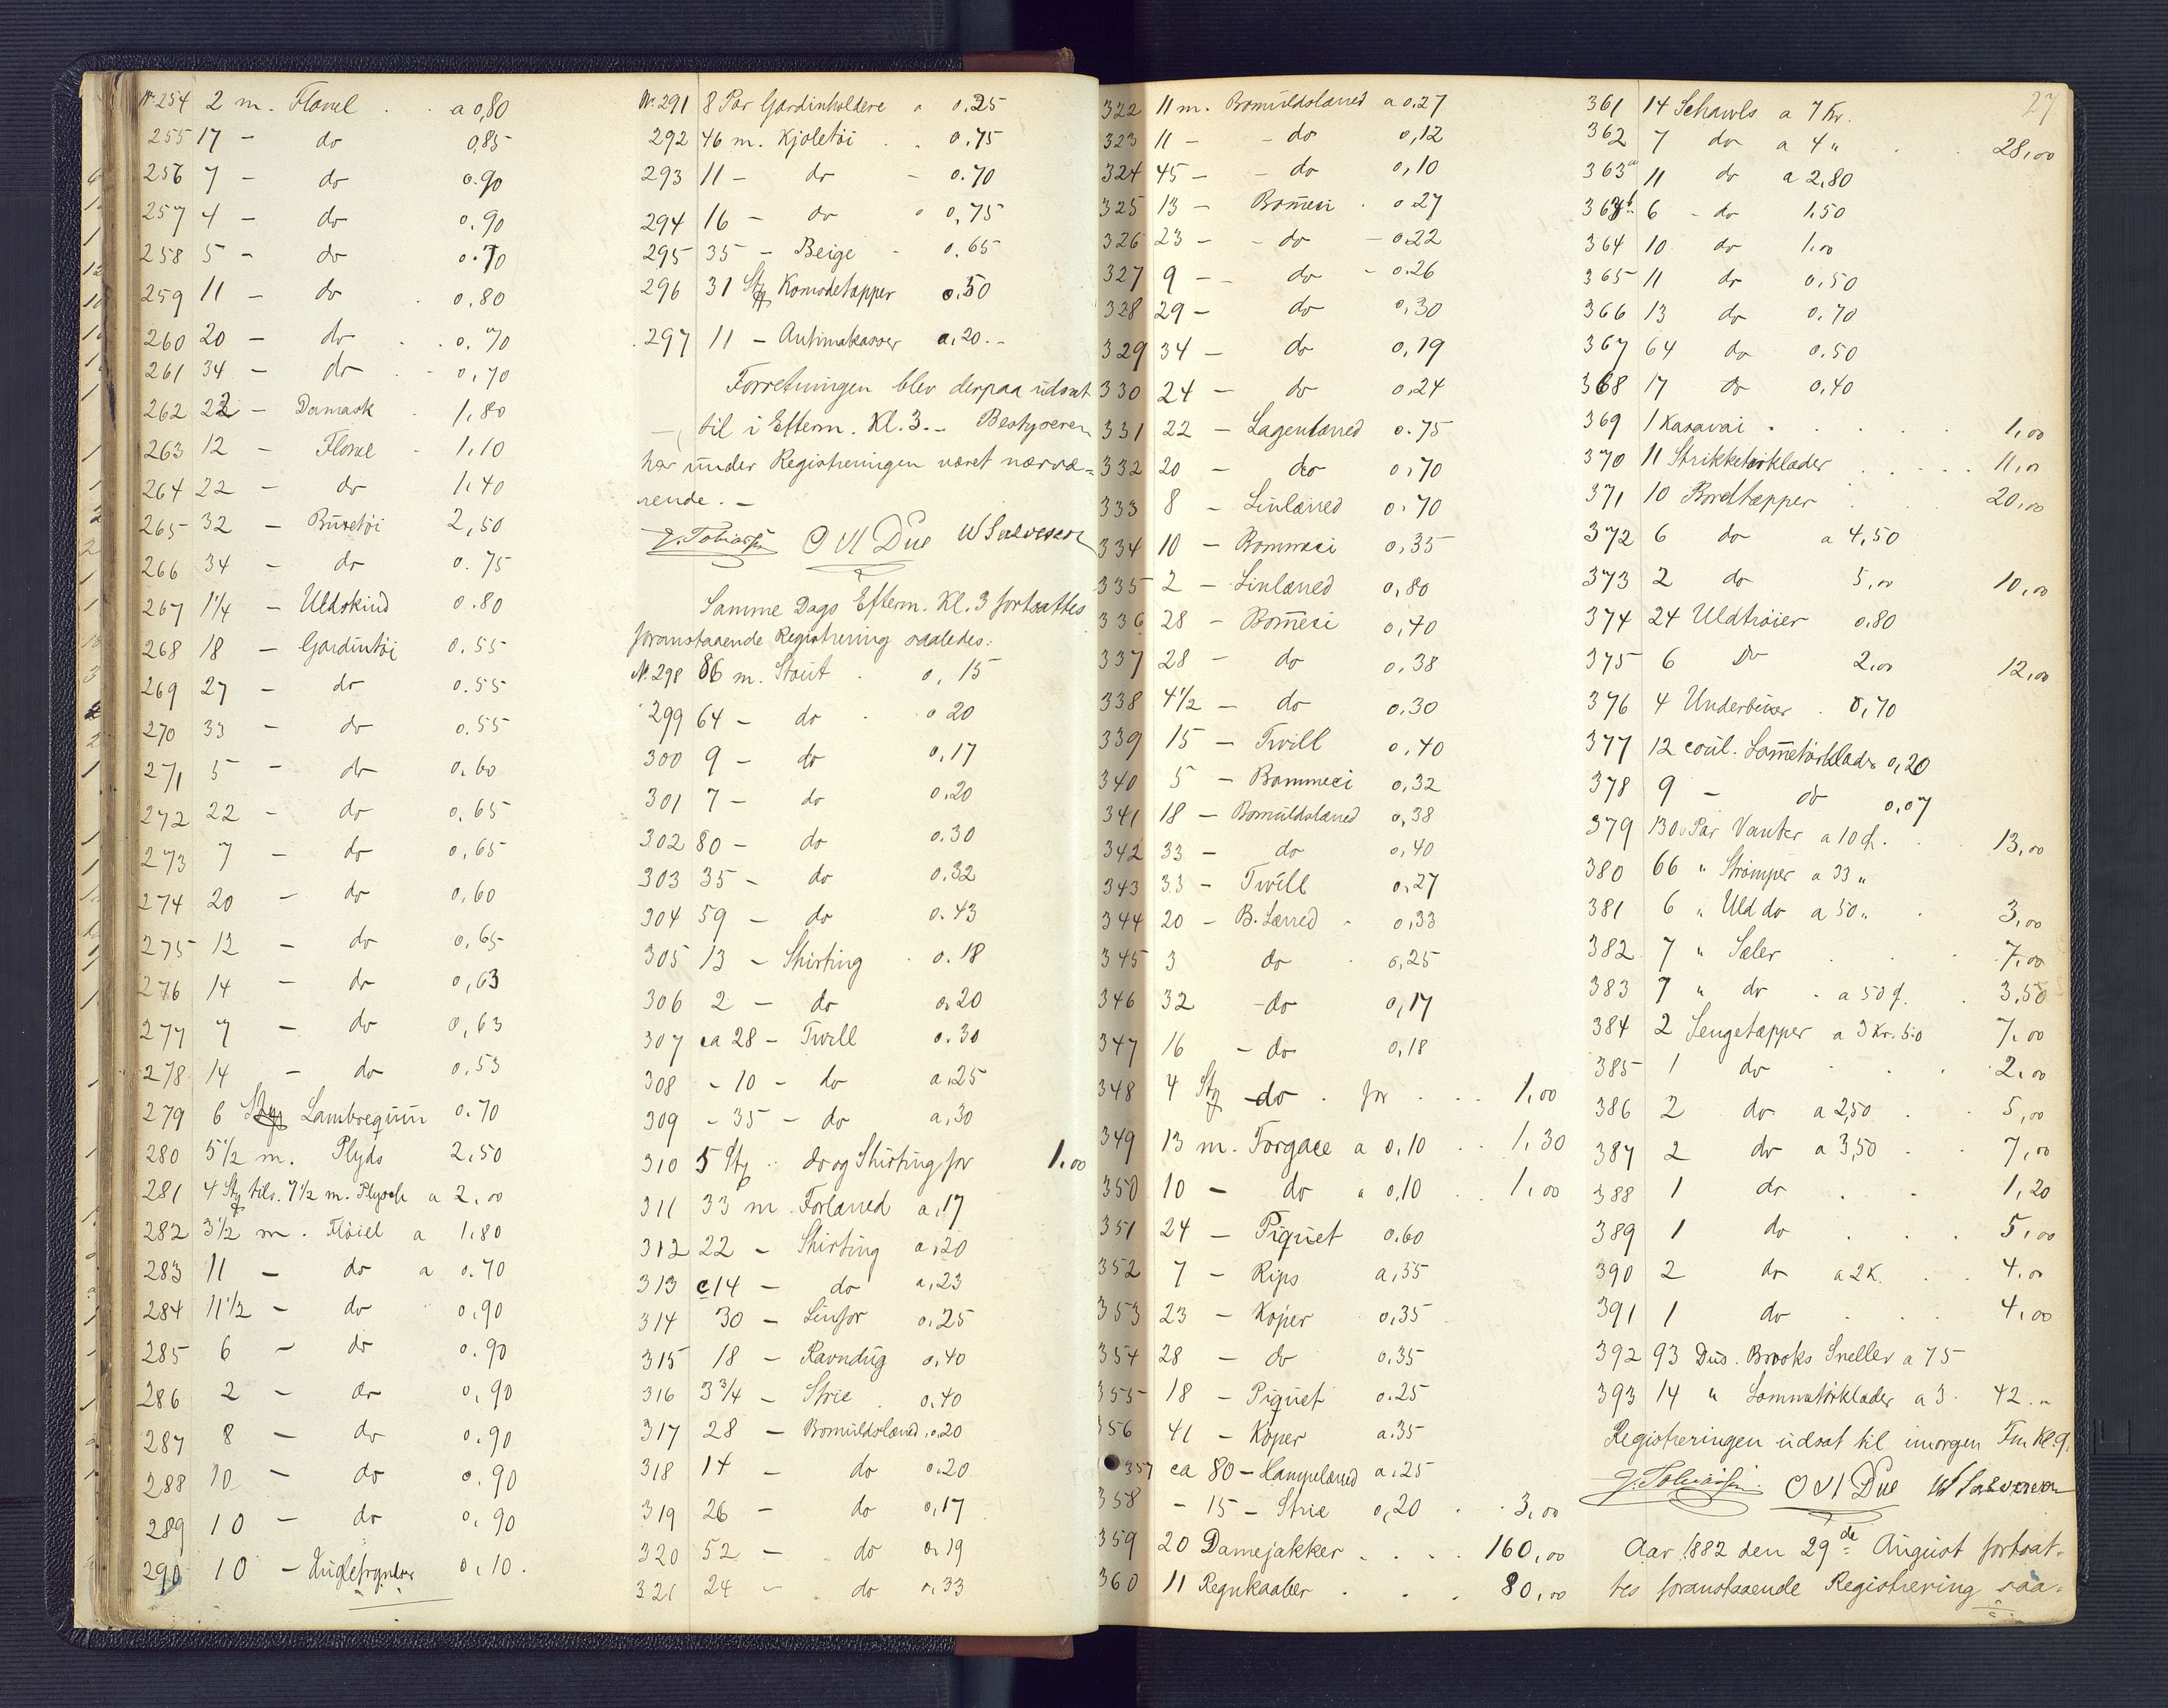 Nr. 254 2 m. Flanel . . a 0,80
255 17 - do 0,85
256 7 - do 0.90
257 4 - do 0.90
258 5 - do 0.70
259 11 - do . 0,80
260 20 - do . . 0.70
261 34 - do . - 0,70
262 22 - Damask . 1,80
263 12 - Flonel . 1,10
264 22 - do 1,40
265 32 - Buxetøi 2,50
266 34 - do 0.75
267 1 1/4 - Uldskind 0.80
268 18 - Gardintøi 0.55
269 27 - do 0.55
270 33 - do 0.55
271 5 - do 0.60
272 22 - do 0.65
273 7 - do 0,65
274 20 - do 0,60
275 12 - do 0,65
276 14 - do 0,63
277 7 - do 0,63
278 14 - do 0.53
279 6 Stkr Lambrequin 0.70
280 5 1/2 m. Plyds 2,50
281 4 Stkr tils. 7 1/2 m. Plysch a 2,00
282 3 1/2 m. Fløiel a 1,80
283 11 - do a 0.70
284 11 1/2 - do 0,90
285 6 - do 0.90
286 2 - do 0,90
287 8 - do 0.90
288 10 - do 0.90
289 10 - do 0.90
290 10 - 0,10.
Nr. 291 8 Par Gardinholdere a 0.25
292 46 m. Kjoletøi . . 0.75
293 11 - do - 0.70
294 16 - do " 0,75
295 35 - Beige - 0.65
296 31 Stkr Komodetæpper 0.50
297 11 - Antimakasser a.20.-
Forretningen blev derpaa udsat
til i Efterm. Kl. 3. - Bestyreren
har under Registreringen været nærvæ=
rende. -
J. Tobiassen O M Due W Salvesen
Samme Dags Efterm. Kl. 3 fortsattes
foranstaaende Registrering saaledes:
N. 298 86 m. Stout . 0,15
299 64 - do . 0 20
300 9 - do 0,17
301 7 - do 0.20
302 80 - do 0.30
303 35 - do 0.32
304 59 - do 0.43
305 13 - Shirting . 0.18
306 2 - do 0.20
307 ca 28 - Twill 0.30
308 - 10 - do a,25
309 - 35 - do a,30
310 5 Stkr . do og Shirting for 1.00
311 33 m. Forlærred a,17
312 22 - Shirting a,20
313 c 14 - do a,23
314 30 - Linfor 0.25
315 18 - Ravndug 0,40
316 3 3/4 - Strie . 0.40
317 28 - Bomuldslærred .0.20
318 14 - do 0.20
319 26 - do 0,17
320 52 - do 0.19
321 24 - do 0.33
322 11 m. Bomuldslærred a 0.27
323 11 - - do 0,12
324 45 - - do 0,10
325 13 - Bomeci . 0.27
326 23 - - do - 0.22
327 9 - - do - 0.26
328 29 - do 0.30
329 34 - do 0,19
330 24 - do 0,24
331 22 - Lagenlærred 0.75
332 20 - do 0,70
333 8 - Linlærred 0.70
334 10 - Bommeci 0,35
335 2 - Linlærred 0,80
336 28 - Bomeci 0,40
337 28 - do 0.38
338 4 1/2 - do 0.30
339 15 - Twill 0,40
340 5 - Bommeci 0,32
341 18 - Bomuldslærred 0,38
342 33 - do 0,40
343 33 - Twill 0,27
344 20 - B. Lærred - 0,33
345 3 do . 0,25
346 32 - do 0,17
347 16 - do 0,18
348 4 Stkr - do . for . . . 1,00
349 13 m. Forgace a 0,10 . . 1,30
350 10 - do a 0,10 . . 1,00
351 24 - Piquet 0.60
352 7 - Rips a,35
353 23 - Køper 0,35
354 28 - do 0.35
355 18 - Piquet 0.25
356 41 - Køper a.35
357 ca 80 - Hampelærred a.25
358 - 15 - Strie 0,20 . . 3,00
359 20 Damejakker . . . . 160,00
360 11 Regnkaaber . . . 80,00
27
361 14 Schawls a 7 Kr.
362 7 do a 4 " . . 28,00
363a 11 do a 2,80
363b 6 - do 1.50
364 10 do 1.00
365 11 do 0,50
366 13 do 0.70
367 64 do 0.50
368 17 do 0,40
369 1 Kasavai . . . . . 1,00
370 11 Strikketørklæder . . . . . 11,00
371 10 Bordtæpper . . . 20,00
372 6 do a 4,50
373 2 do 5,00 10,00
374 24 Uldtrøier 0.80
375 6 Do 2,00 12,00
376 4 Underbuxer . 0,70
377 12 coul. Lometørklæde 0,20
378 9 - do 0,07
379 130 Par Vanter a 10 ø. . . 13,00
380 66 " Strømper a 33 "
381 6 " Uld do a 50 " . 3,00
382 7 " Seler . . . 7,00
383 7 " do . a 50 ø. . 3,50
384 2 Sengetæpper a 3 Kr. 50 7.00
385 1 do . . . 2.00
386 2 do a 2,50 . . 5,00
387 2 do a 3,50 . . 7,00
388 1 do . . 1,20
389 1 do . . . 5,00
390 2 do a 2 K. . . 4.00
391 1 do . . . 4,00
392 93 Dus. Brooks Sneller a 75
393 14 " Lommetørklæder a 3. 42.-
Registreringen udsat til imorgen Fm Kl. 9.
J. Tobiassen. O M Due W Salvesen
Aar 1882 den 29de August fortsat-
tes foranstaaende Registrering saa-